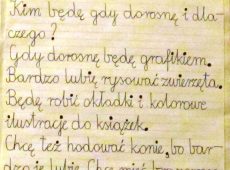 Kim będę gdy dorosnę i dla-
czego?
Gdy dorosnę będę grafikiem.
Bardzo lubię rysować zwierzęta.
Będę robić okładki i kolorowe
ilustracje do książek.
Chcę też hodować konie, bo bar-
dzo je lubię. Chcę mieć